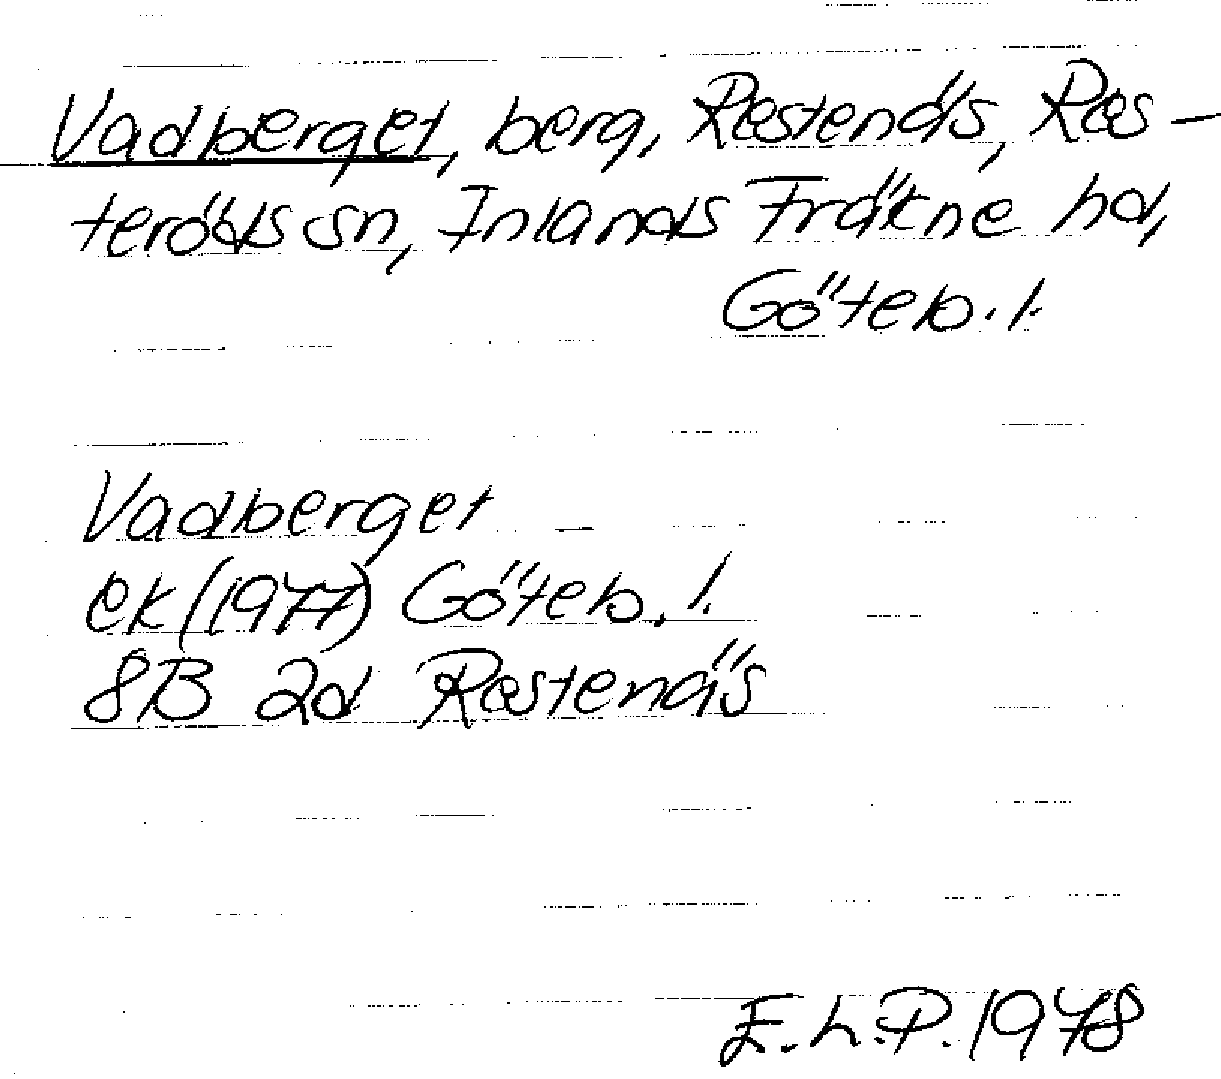 Vadberget, berg, Restenäs, Res-
teröds sn, Inlands Fräkne hd,
Göteb. l.
Vadberget
ek (1977) Göteb. l.
8B 2d Restenäs
E.L.P. 1978